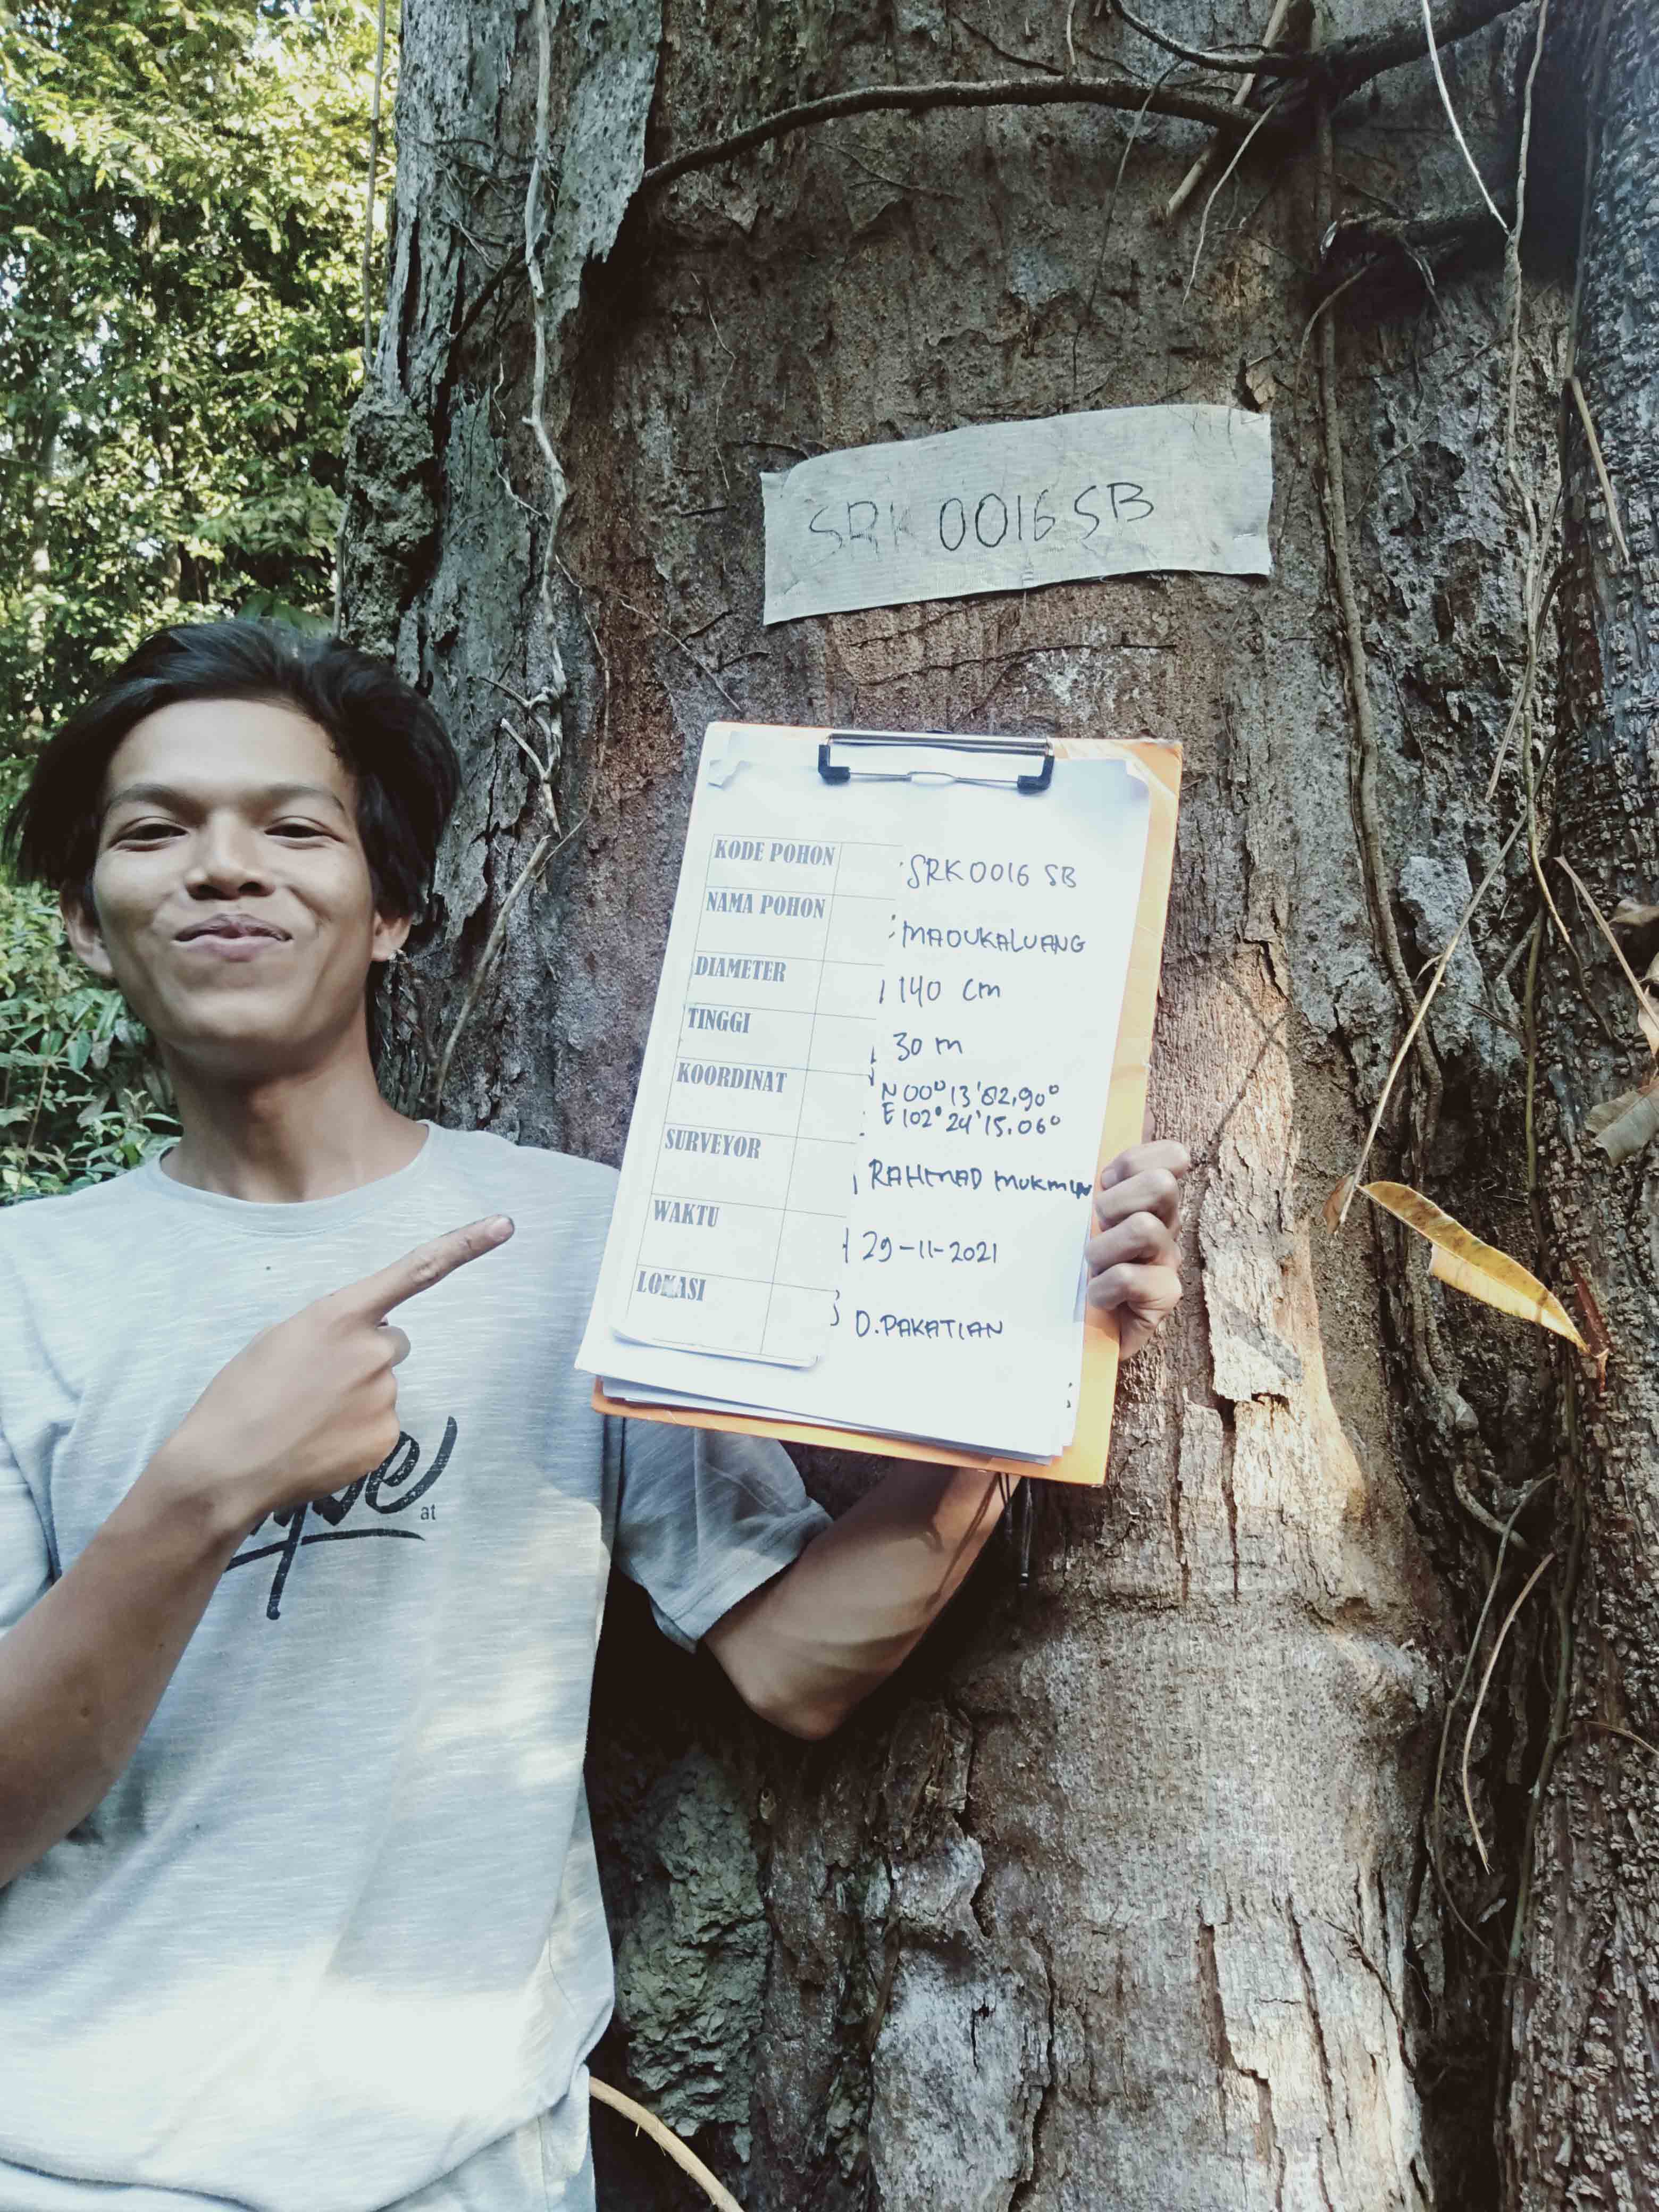 SRK 0016 SB
KODE POHON : SRK 0016 SB
NAMA POHON : MADUKALUANG
DIAMETER : 140 cm
TINGGI : 30 m
KOORDINAT : N 00° 13' 82,90°
E 102° 24' 15.06°
SURVEYOR : RAHMAD MUKMIN
WAKTU : 29-11-2021
LOKASI : D.PAKATIAN
at